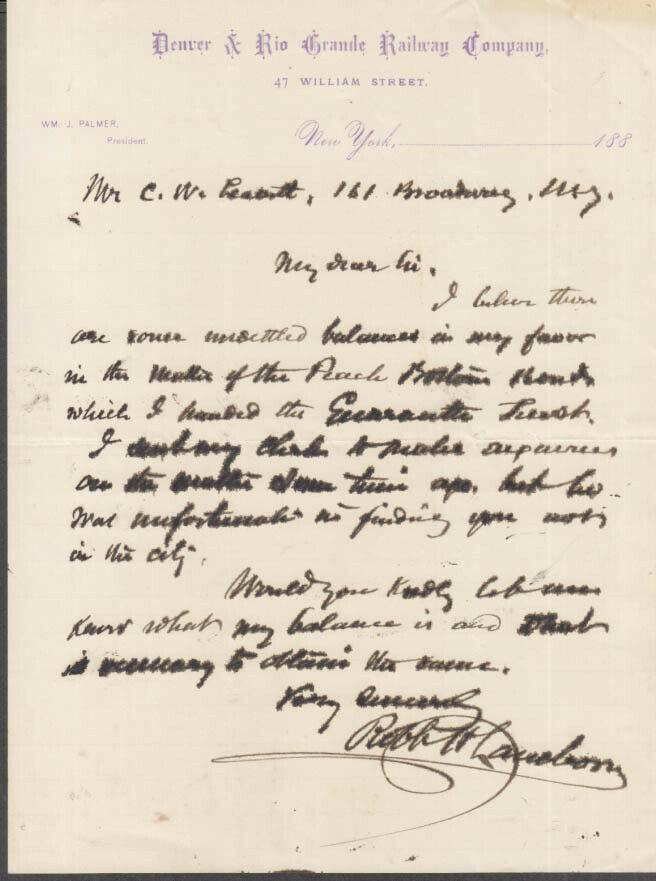 Denver & Rio Grande Railway Company,
47 WILLIAM STREET.
WM. J. PALMER,
President.
New York, 188
Mr C. W. Leavitt, 161 Broadway, N.Y.
My dear Sir.
I believe there
are some unsettled balances in my favor
in the matter of the Peach Bottom Bonds
which I handed the Guarantee Trust.
I sent my clerk to make inquiries
on the matter some time ago, but he
was unfortunate in finding you not
in the city.
Would you kindly let me
know what my balance is and what
is necessary to obtain the same.
Very sincerely
Robt H Lamborn